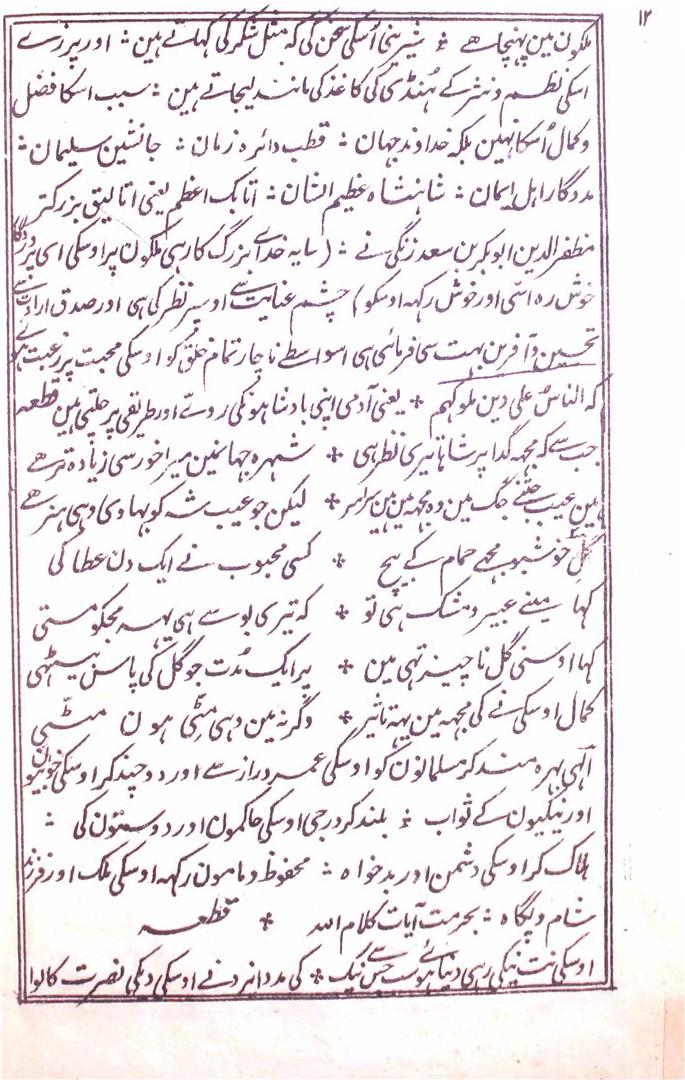 ۱۲
ملکون مین پہنچا ہے ؛ شیرینی اُسکی سخن کی کہ مثل شکر کی کہاتے ہین ؛ اور پرزے
اسکی نظم و نثر کے ہُنڈی کی کاغذ کی مانند لیجاتے ہین ؛ سبب اسکا فضل
و کمال اُسکا نہین بلکہ خداوند جہان ؛ قطب دائرہ زمان ؛ جانشین سلیمان ؛
مددگار اہل ایمان ؛ شاہنشاہ عظیم الشان ؛ اتابک اعظم یعنی اتالیق بزرکتر
مظفر الدین ابوبکر بن سعد زنگی نے ؛ (سایہ خداے بزرگ کا رہی ملکون پر اوسکی ای پروردگار
خوش رہ اسّی اور خوش رکہہ اوسکو) چشم عنایت سے اوسپر نظر کی ہی اور صدق ارادت سے
تحسین و آفرین بہت سی فرمائی ہی اسواسطے ناچار تمام خلق کو اوسکی محبت پر رغبت ہوئے
کہ الناس علی دین ملوکہم * یعنی آدمی اپنی بادشاہونکی روئے اور طریقی پر چلتی ہین قطعہ
جب سے کہ مجہہ گدا پر شاہا تیری نظر ہی * شہرہ جہانمین میرا خور سی زیادہ تر ہے
ہین عیب جتنے جگ مین وہ مجہہ مین ہین سراسر * لیکن جو عیب شہ کو بہاوی وہی ہنر ہے
گلِ خوشبو مجھے حمام کے بیچ * کسی محبوب نے ایک دن عطا کی
کہا مینے عبیر و مشک ہی تو * کہ تیری بو سے ہی یہہ مجکو مستی
کہا اوسنی گل ناچیز تہی مین * پر ایک مُدت جو گل کی پاس بیٹہی
کمال اوسکی نے کی مجہہ مین یہہ تاثیر * وگرنہ مین وہی مٹّی ہون مٹّی
الٰہی بہرہ مند کر مسلمانون کو اوسکی عمر دراز سے اور دوچند کر اوسکی خوبیون
اور نیکیون کے ثواب ؛ بلند کر درجی اوسکی حاکمون اور دوستون کی ؛
ہلاک کر اوسکی دشمن اور بدخواہ ؛ محفوظ و مامون رکہہ اوسکی ملک اور فرزند
شام و پگاہ ؛ بحرمت آیات کلام اللہ * قطعہ
اوسکی نت نیکی رہی دنیا ہوئے سے جس نیک * کی مدد ایزد نے اوسکی دیکی نصرت کا لوا